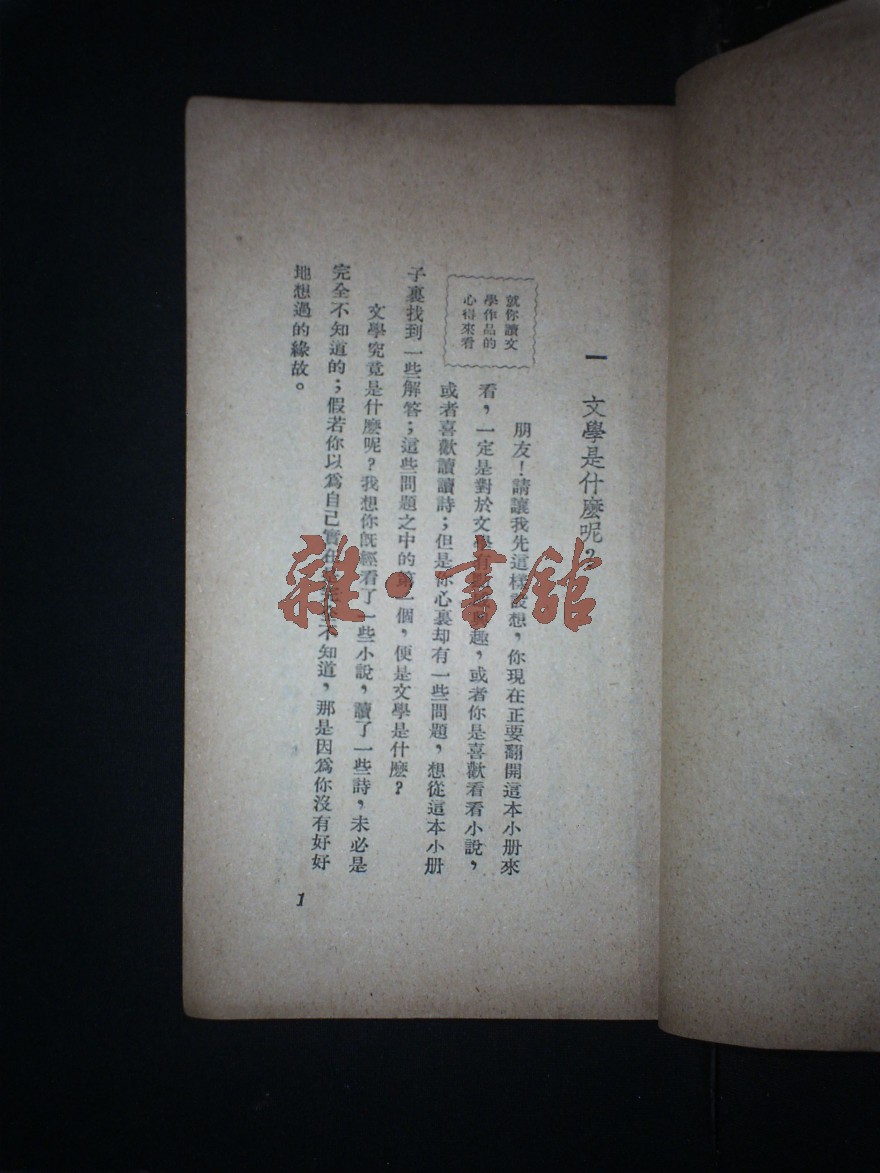 一 文學是什麼呢？
就你讀文
學作品的
心得來看
朋友！請讓我先這樣設想，你現在正要翻開這本小册來
看，一定是對於文學有趣，或者你是喜歡看看小說，
或者喜歡讀讀詩；但是你心裏却有一些問題，想從這本小册
子裏找到一些解答；這些問題之中的第一個，便是文學是什麼？
文學究竟是什麼呢？我想你既經看了一些小說，讀了一些詩，未必是
完全不知道的；假若你以爲自己實不知道，那是因爲你沒有好好
地想過的緣故。
1
雜·書館